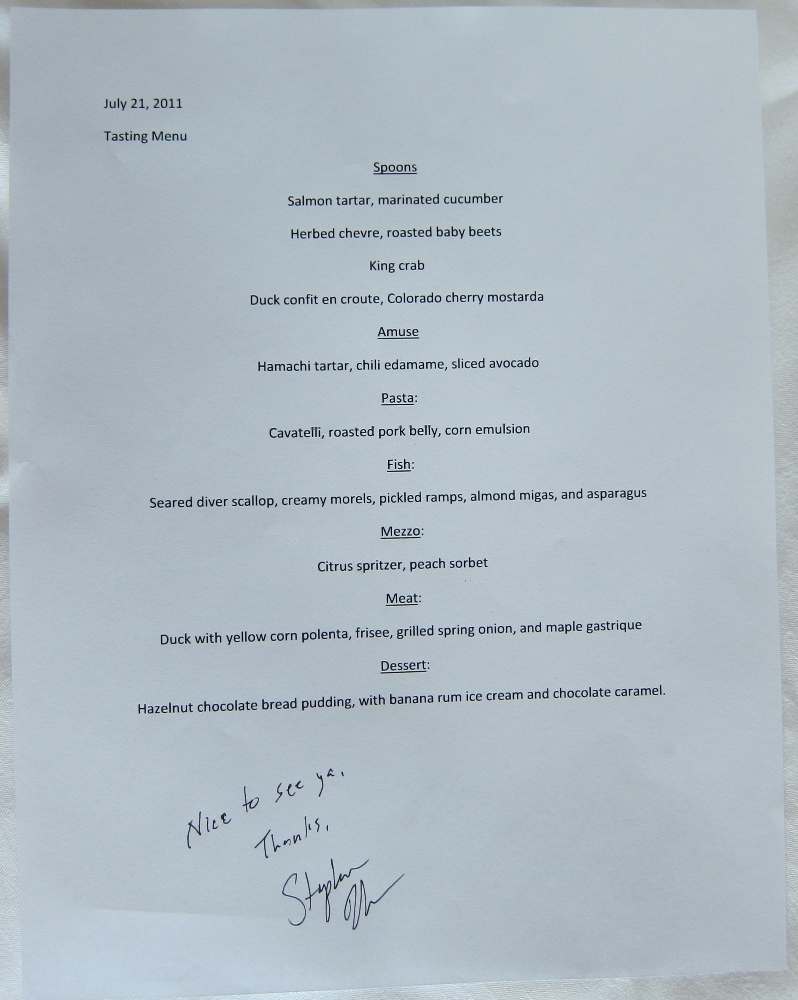 July 21, 2011
Tasting Menu
Spoons
Salmon tartar, marinated cucumber
Herbed chevre, roasted baby beets
King crab
Duck confit en croute, Colorado cherry mostarda
Amuse
Hamachi tartar, chili edamame, sliced avocado
Pasta:
Cavatelli, roasted pork belly, corn emulsion
Fish:
Seared diver scallop, creamy morels, pickled ramps, almond migas, and asparagus
Mezzo:
Citrus spritzer, peach sorbet
Meat:
Duck with yellow corn polenta, frisee, grilled spring onion, and maple gastrique
Dessert:
Hazelnut chocolate bread pudding, with banana rum ice cream and chocolate caramel.
Nice to see ya.
Thanks,
Stephen